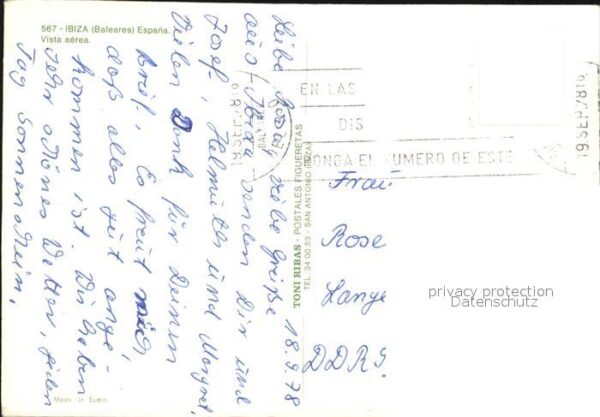 567 - IBIZA (Baleares) España.
Vista aérea.
18.9.78
Liebe Rosa! Liebe Grüße
aus Ibiza senden Dir und
Josef, Helmuth und Margret.
Vielen Dank für Deinen
Brief. Es freut mich,
daß alles gut ange-
kommen ist. Wir haben
sehr schönes Wetter, jeden
Tag Sonnenschein,
TONI RIBAS - POSTALES FIGUERETAS
TEL. 34 00 53 - SAN ANTONIO (IBIZA)
19 SEP. 78
EN LAS
DIS
PONGA EL NUMERO DE ESTE
19 SEP. 78
Frau
Rose
Lange
DDR
privacy protection
Datenschutz
Made in Spain